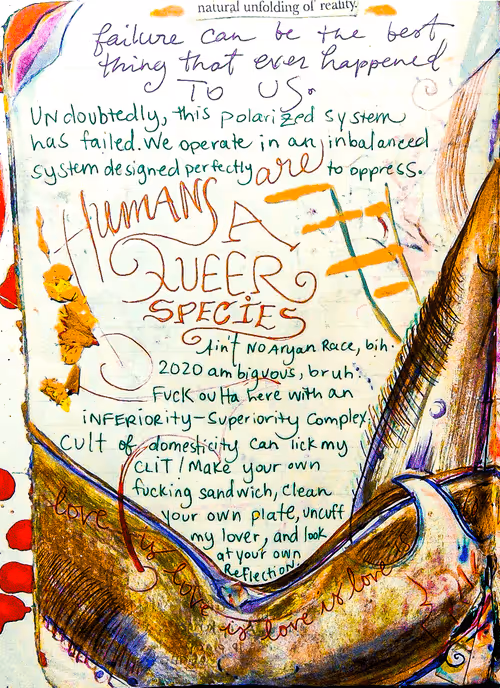 natural unfolding of reality.
failure can be the best
thing that ever happened
TO US.
UNdoubtedly, this polarized system
has failed. We operate in an inbalanced
system designed perfectly to oppress.
HUMANS are
A
QUEER
SPECIES
Ain't No Aryan Race, bih.
2020 ambiguous, bruh.
Fuck outta here with an
iNFERiORiTY-Superiority Complex.
Cult of domesticity can lick my
CLiT/Make your own
fucking sandwich, clean
your own plate, uncuff
my lover, and look
at your own
Reflection.
love is love is love is love is